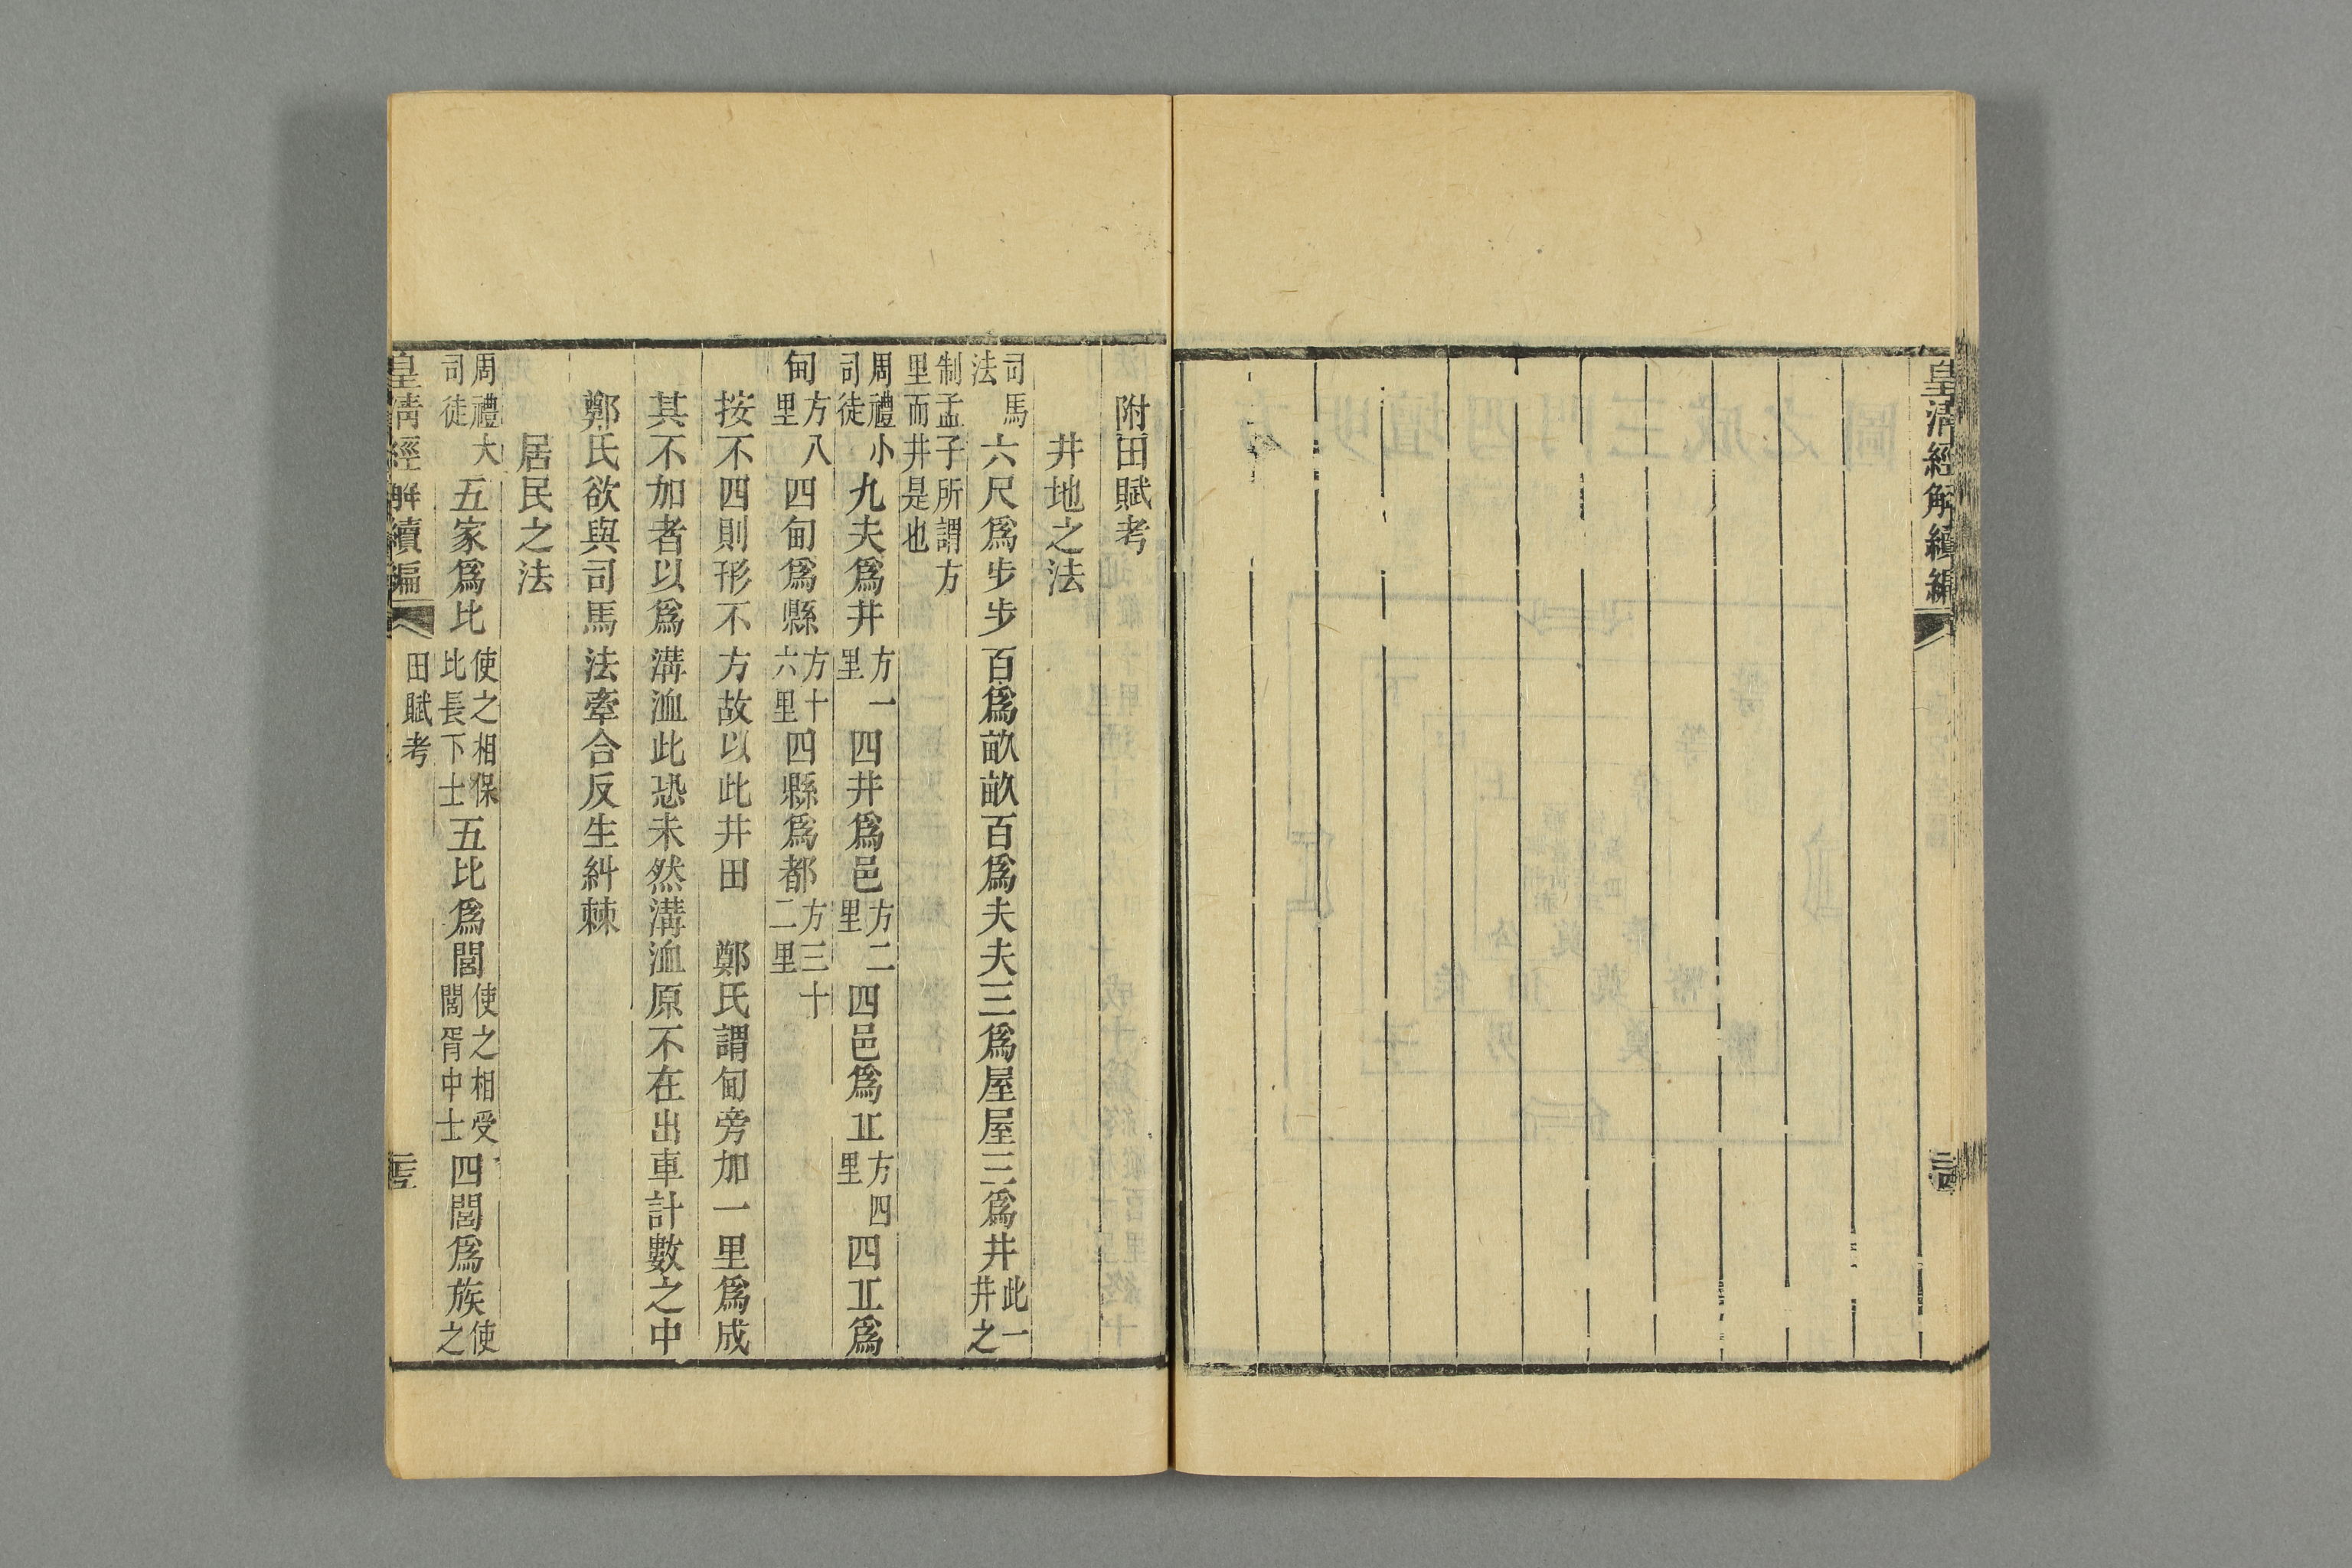 皇清經解續編
附田賦考
井地之法
司馬法六尺爲步步百爲畝畝百爲夫夫三爲屋屋三爲井此一井之
制孟子所謂方里而井是也
周禮小司徒九夫爲井方一里四井爲邑方二里四邑爲𠀌方四里四𠀌爲
甸方八里四甸爲縣方十六里四縣爲都方三十二里
按不四則形不方故以此井田　鄭氏謂甸旁加一里爲成
其不加者以爲溝洫此恐未然溝洫原不在出車計數之中
鄭氏欲與司馬法牽合反生糾棘
居民之法
周禮大司徒五家爲比使之相保比長下士五比爲閭使之相受閭胥中士四閭爲族使之
皇清經解續編　田賦考